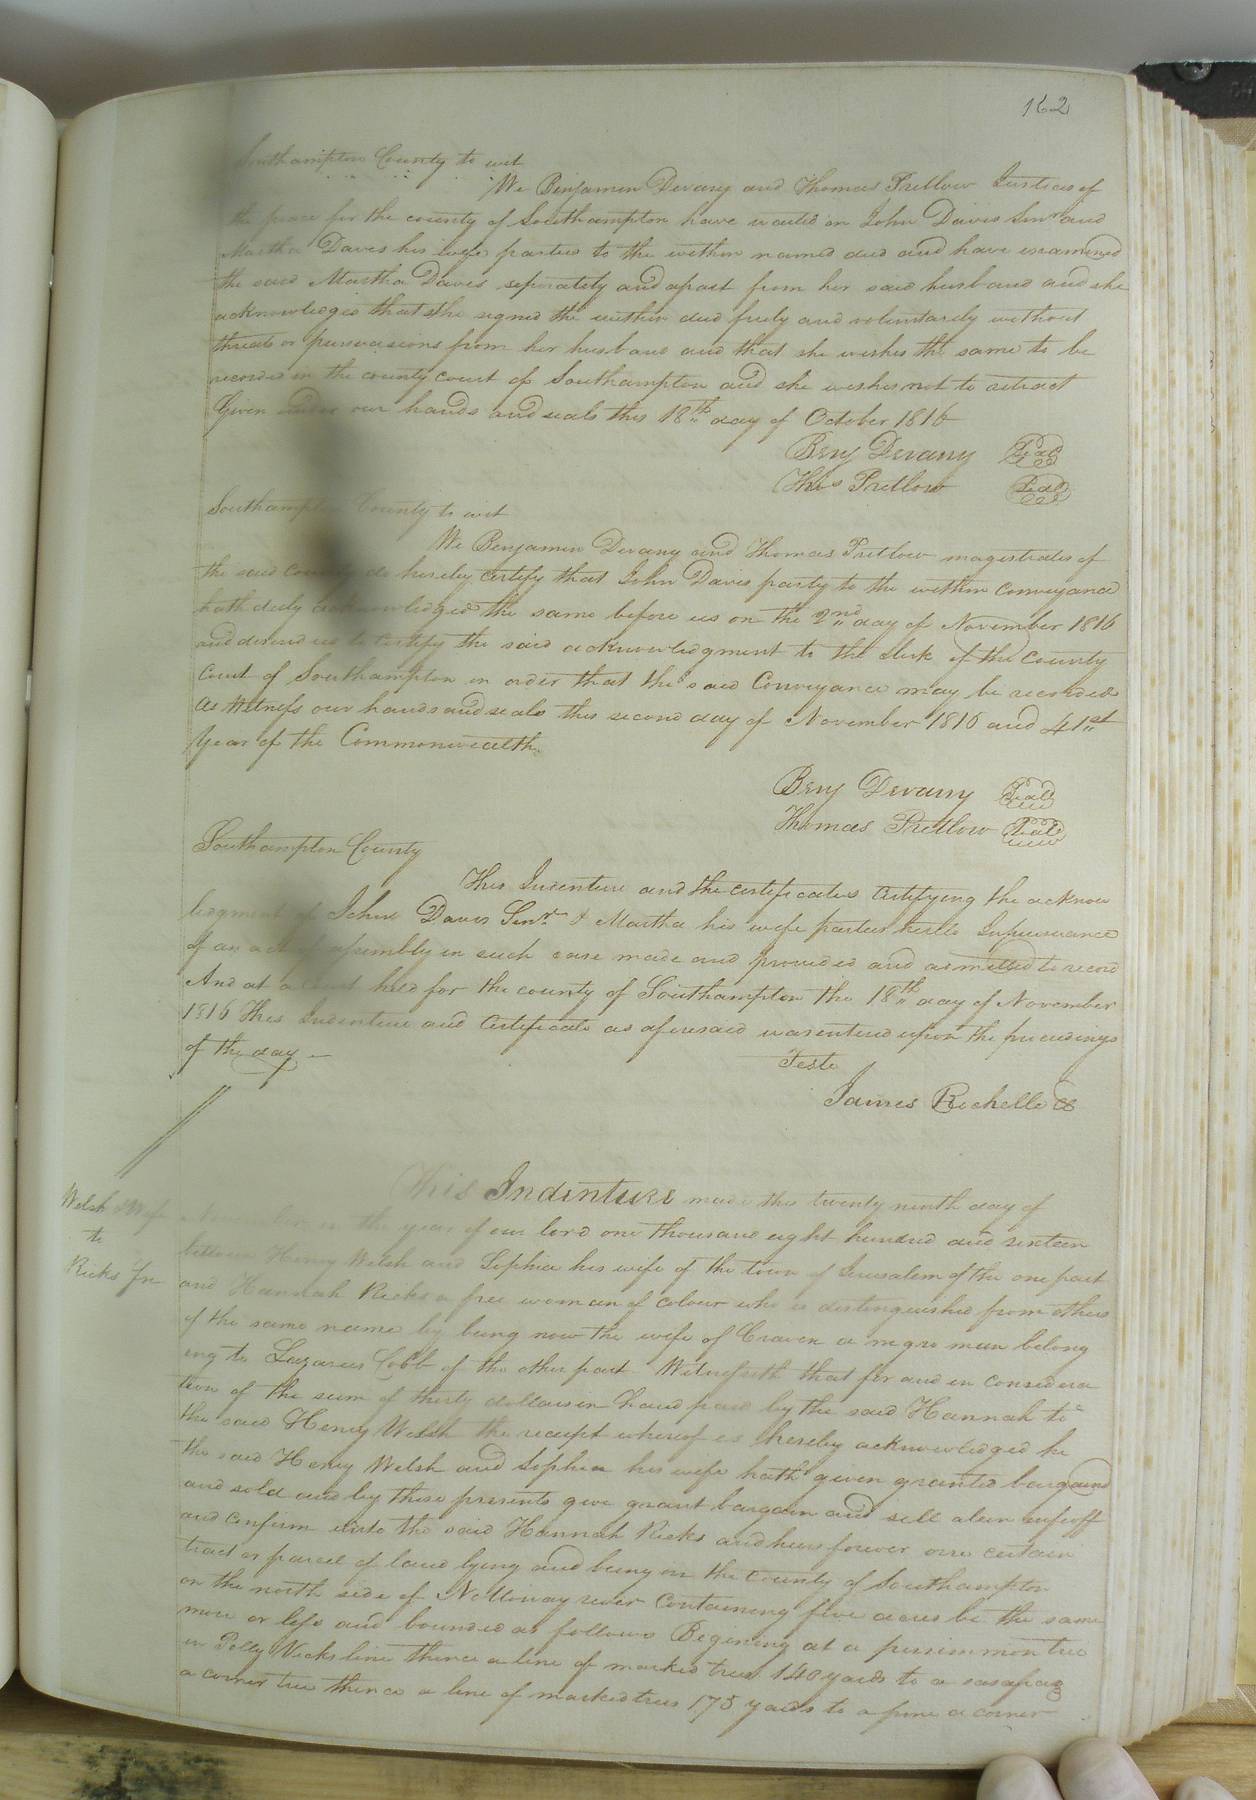 162
Southampton County to wit
We Benjamin Devany and Thomas Pretlow Justices of
the peace for the county of Southampton have waited on John Davis Senr and
Martha Davis his wife parties to the within named deed and have examined
the said Martha Davis seperately and apart from her said husband and she
acknowledges that she signed the within deed freely and voluntarily without
threats or persuasions from her husband and that she wishes the same to be
recorded in the county court of Southampton and she wishes not to retract
Given under our hands and seals this 18th day of October 1816
Benj Devany Seal
Thos Pretlow Seal
Southampton County to wit
We Benjamin Devany and Thomas Pretlow magistrates of
the said County do hereby certify that John Davis party to the within conveyance
hath duly acknowledged the same before us on the 2nd day of November 1816
and desired us to certify the said acknowledgment to the clerk of the County
Court of Southampton in order that the said Conveyance may be recorded
As Witness our hands and seals this second day of November 1816 and 41st
Year of the Commonwealth
Benj Devany Seal
Thomas Pretlow Seal
Southampton County
This Indenture and the certificates Certifying the acknow
ledgment of John Davis Senr & Martha his wife parties hereto Inpursuance
of an act of assembly in such case made and provided and admitted to record
And at a Court held for the county of Southampton the 18th day of November
1816 This Indenture and Certificate as aforesaid was entered upon the proceedings
of the day
Teste
James Rochelle CC
This Indenture made this twenty ninth day of
Welsh & Wf November in the year of our lord one thousand eight hundred and sixteen
to between Henry Welsh and Sophia his wife of the town of Jerusalem of the one part
Ricks Jr and Hannah Ricks a free woman of colour who is distinguished from others
of the same name by being now the wife of Craven a negro man belong
ing to Lazarus Cobb of the other part Witnesseth that for and in considera
tion of the sum of thirty dollars in hand paid by the said Hannah to
the said Henry Welsh the receipt whereof is hereby acknowledged he
the said Henry Welsh and Sophia his wife hath given granted bargaind
and sold and by these presents give grant bargain and sell alein enfeoff
and confirm unto the said Hannah Ricks and heirs forever one certain
tract or parcel of land lying and being in the County of Southampton
on the north side of Nottoway river Containing five acres be the same
more or less and bounded as follows Begining at a persimmon tree
in Polly Vicks line thence a line of marked trees 140 yards to a sasafras
a corner tree thence a line of marked trees 175 yards to a pine a corner